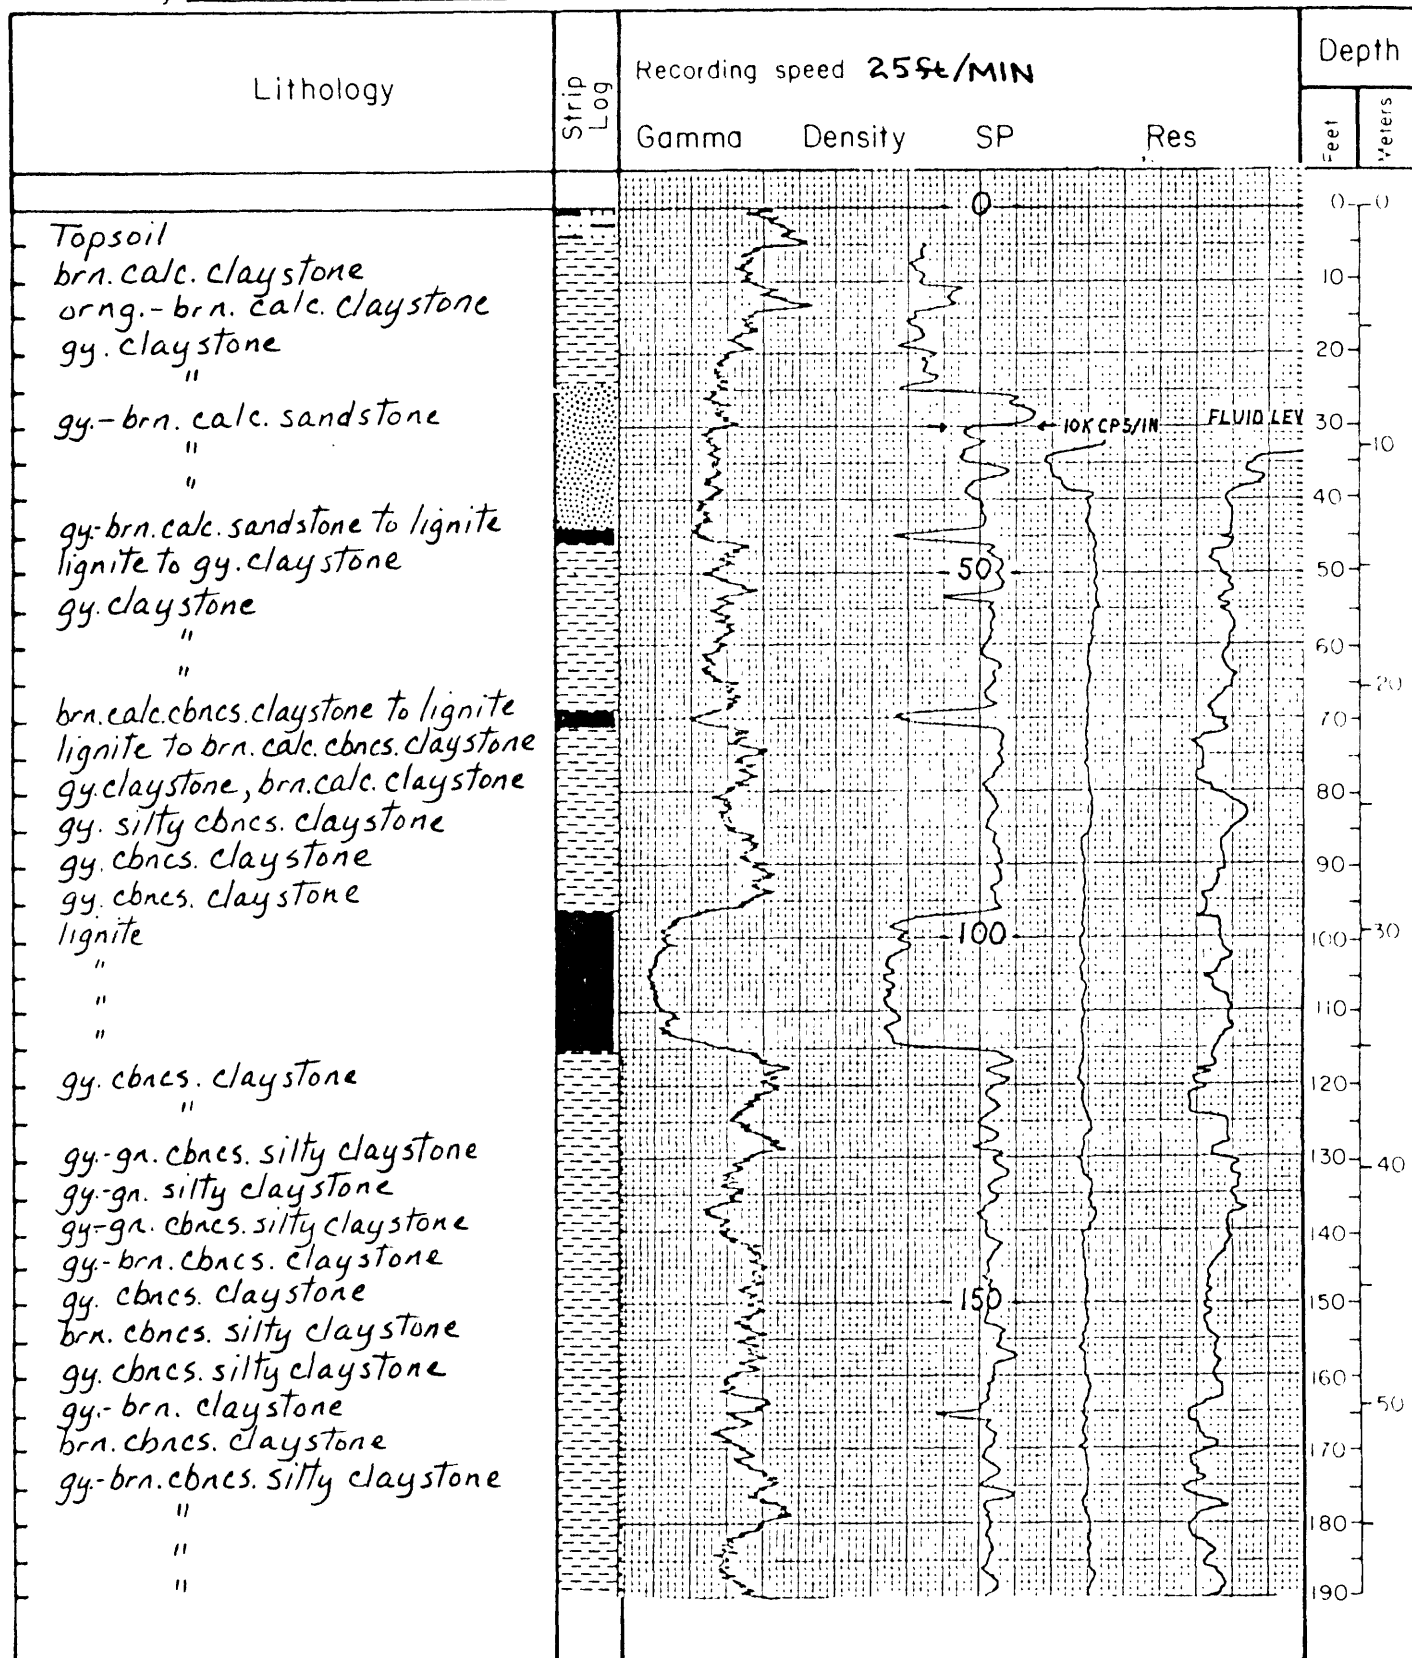 Lithology
Strip Log
Recording speed 25ft/MIN
Gamma Density SP Res
Depth
Feet
Meters
0
0
0
Topsoil
brn. calc. claystone
orng.-brn. calc. claystone
gy. claystone
"
gy.-brn. calc. sandstone
"
"
gy-brn. calc. sandstone to lignite
lignite to gy. claystone
gy. claystone
"
"
brn. calc. cbncs. claystone to lignite
lignite to brn. calc. cbncs. claystone
gy. claystone, brn. calc. claystone
gy. silty cbncs. claystone
gy. cbncs. claystone
gy. cbncs. claystone
lignite
"
"
"
gy. cbncs. claystone
"
gy.-gn. cbncs. silty claystone
gy.-gn. silty claystone
gy-gn. cbncs. silty claystone
gy.-brn. cbncs. claystone
gy. cbncs. claystone
brn. cbncs. silty claystone
gy. cbncs. silty claystone
gy.-brn. claystone
brn. cbncs. claystone
gy.-brn. cbncs. silty claystone
"
"
"
10K CPS/IN
FLUID LEV
50
100
150
10
20
30
40
50
60
70
80
90
100
110
120
130
140
150
160
170
180
190
10
20
30
40
50